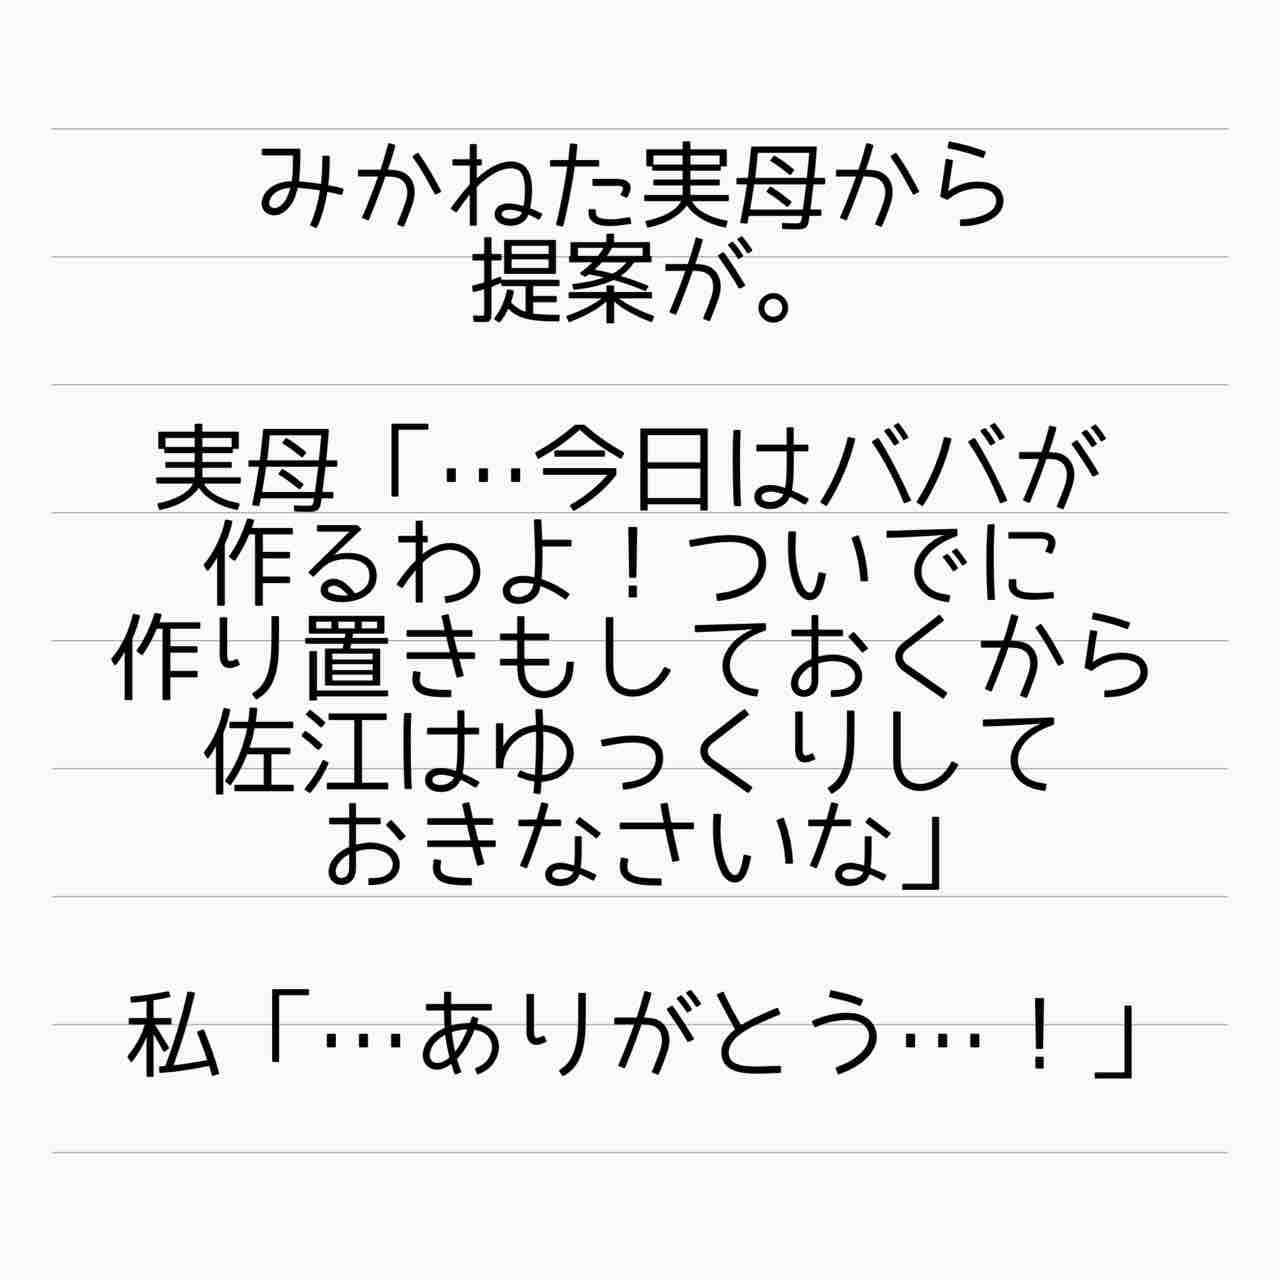 みかねた実母から
提案が。
実母「…今日はババが
作るわよ！ついでに
作り置きもしておくから
佐江はゆっくりして
おきなさいな」
私「…ありがとう…！」